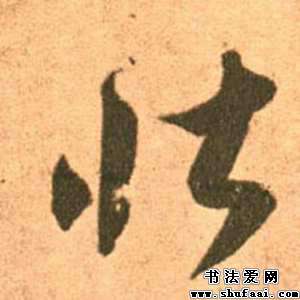 壮
书法爱网
www.shufaai.com